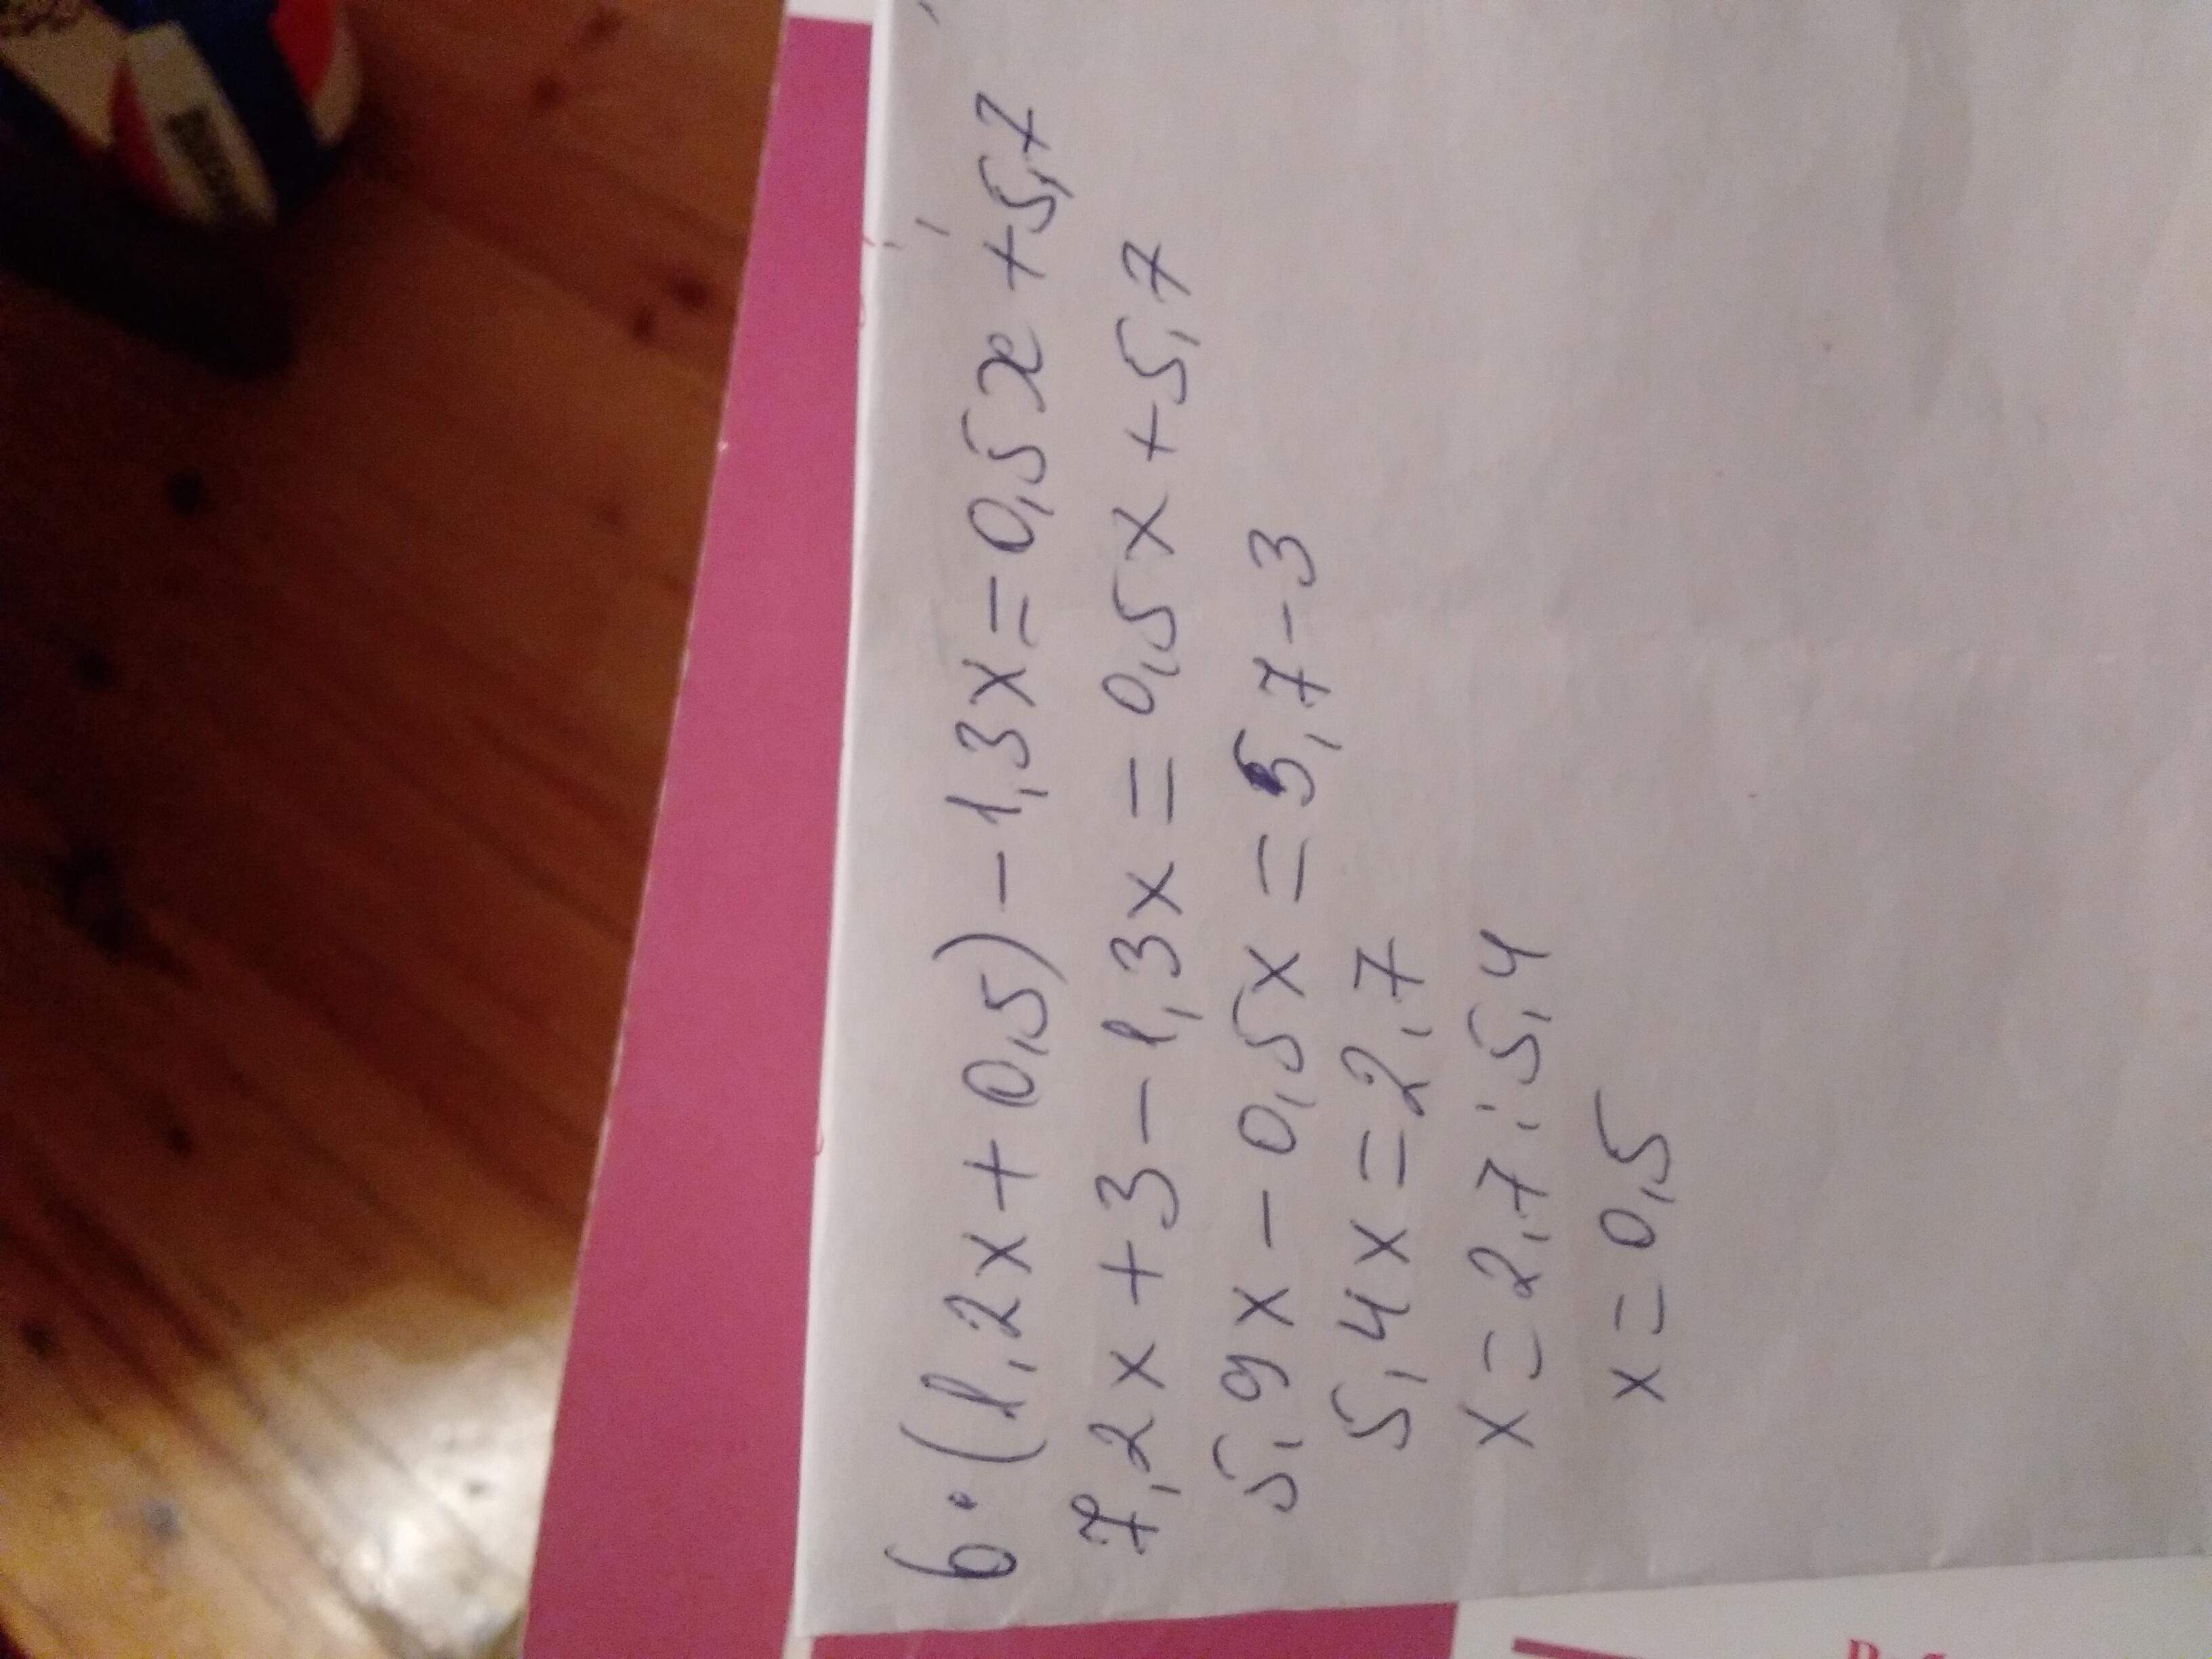 6·(1,2x+0,5)-1,3x=0,5x+5,7
7,2x+3-1,3x=0,5x+5,7
5,9x-0,5x=5,7-3
5,4x=2,7
x=2,7:5,4
x=0,5